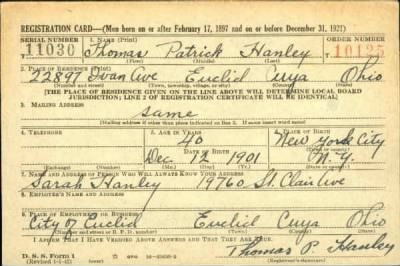 REGISTRATION CARD—(Men born on or after February 17, 1897 and on or before December 31, 1921)
SERIAL NUMBER 1. NAME (Print) ORDER NUMBER
11030 Thomas Patrick Hanley 10125
(First) (Middle) (Last)
2. PLACE OF RESIDENCE (Print)
22897 Ivan Ave Euclid Cuya Ohio
(Number and street) (Town, township, village, or city) (County) (State)
[THE PLACE OF RESIDENCE GIVEN ON THE LINE ABOVE WILL DETERMINE LOCAL BOARD
JURISDICTION; LINE 2 OF REGISTRATION CERTIFICATE WILL BE IDENTICAL]
3. MAILING ADDRESS
same
[Mailing address if other than place indicated on line 2. If same insert word same]
4. TELEPHONE 5. AGE IN YEARS 6. PLACE OF BIRTH
40 New York City
DATE OF BIRTH (Town or county)
Dec 12 1901 N.Y.
(Exchange) (Number) (Mo.) (Day) (Yr.) (State or country)
7. NAME AND ADDRESS OF PERSON WHO WILL ALWAYS KNOW YOUR ADDRESS
Sarah Hanley 19760 St. Clair Ave
8. EMPLOYER'S NAME AND ADDRESS
City of Euclid Euclid Cuya Ohio
9. PLACE OF EMPLOYMENT OR BUSINESS
(Number and street or R. F. D. number) (Town) (County) (State)
I AFFIRM THAT I HAVE VERIFIED ABOVE ANSWERS AND THAT THEY ARE TRUE.
Thomas P. Hanley
D. S. S. Form 1
(Revised 1-1-42) (over) (Registrant's signature)